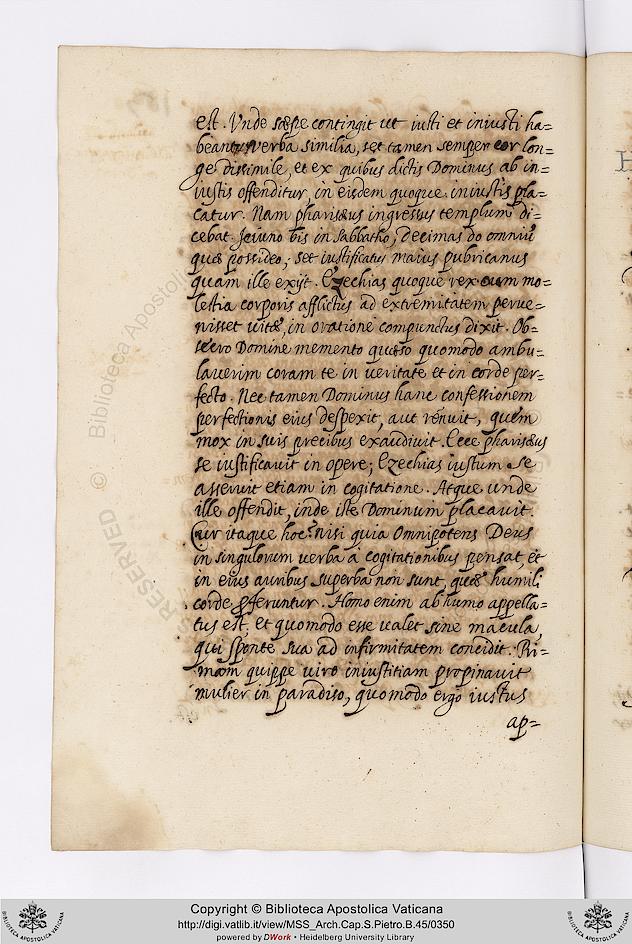 est. Vnde sæpe contingit ut iusti et iniusti ha=
beant verba similia, set tamen semper cor lon=
ge dissimile, et ex quibus dictis Dominus ab in=
iustis offenditur, in eisdem quoque iniustis pla=
catur. Nam pharisæus ingressus templum di=
cebat. Jeiuno bis in Sabbatho, Decimas do omniũ
quæ possideo; set iustificatus maius pubricanus
quam ille exijt. Ezechias quoque rex cum mo=
lestia corporis afflictus ad extremitatem perue=
nisset uitæ, in oratione compunctus dixit. Ob=
secro Domine memento quæso quomodo ambu=
lauerim coram te in ueritate et in corde per=
fecto. Nec tamen Dominus hanc confessionem
perfectionis eius despexit, aut renuit, quem
mox in suis precibus exaudiuit. Ecce pharisæus
se iustificauit in opere; Ezechias iustum se
asseruit etiam in cogitatione. Atque unde
ille offendit, inde iste Dominum placauit.
Cur itaque hoc? nisi quia Omnipotens Deus
in singulorum uerba a cogitationibus pensat, et
in eius auribus superba non sunt, quæ humili
corde ꝓferuntur. Homo enim ab humo appella=
tus est, et quomodo esse ualet sine macula,
qui sponte sua ad infirmitatem concidit. Pri=
mam quippe uiro iniustitiam propinauit
mulier in paradiso, quomodo ergo iustus
ap=
Biblioteca Apostolica
©
RESERVED
Copyright © Biblioteca Apostolica Vaticana
http://digi.vatlib.it/view/MSS_Arch.Cap.S.Pietro.B.45/0350
powered by DWork • Heidelberg University Library